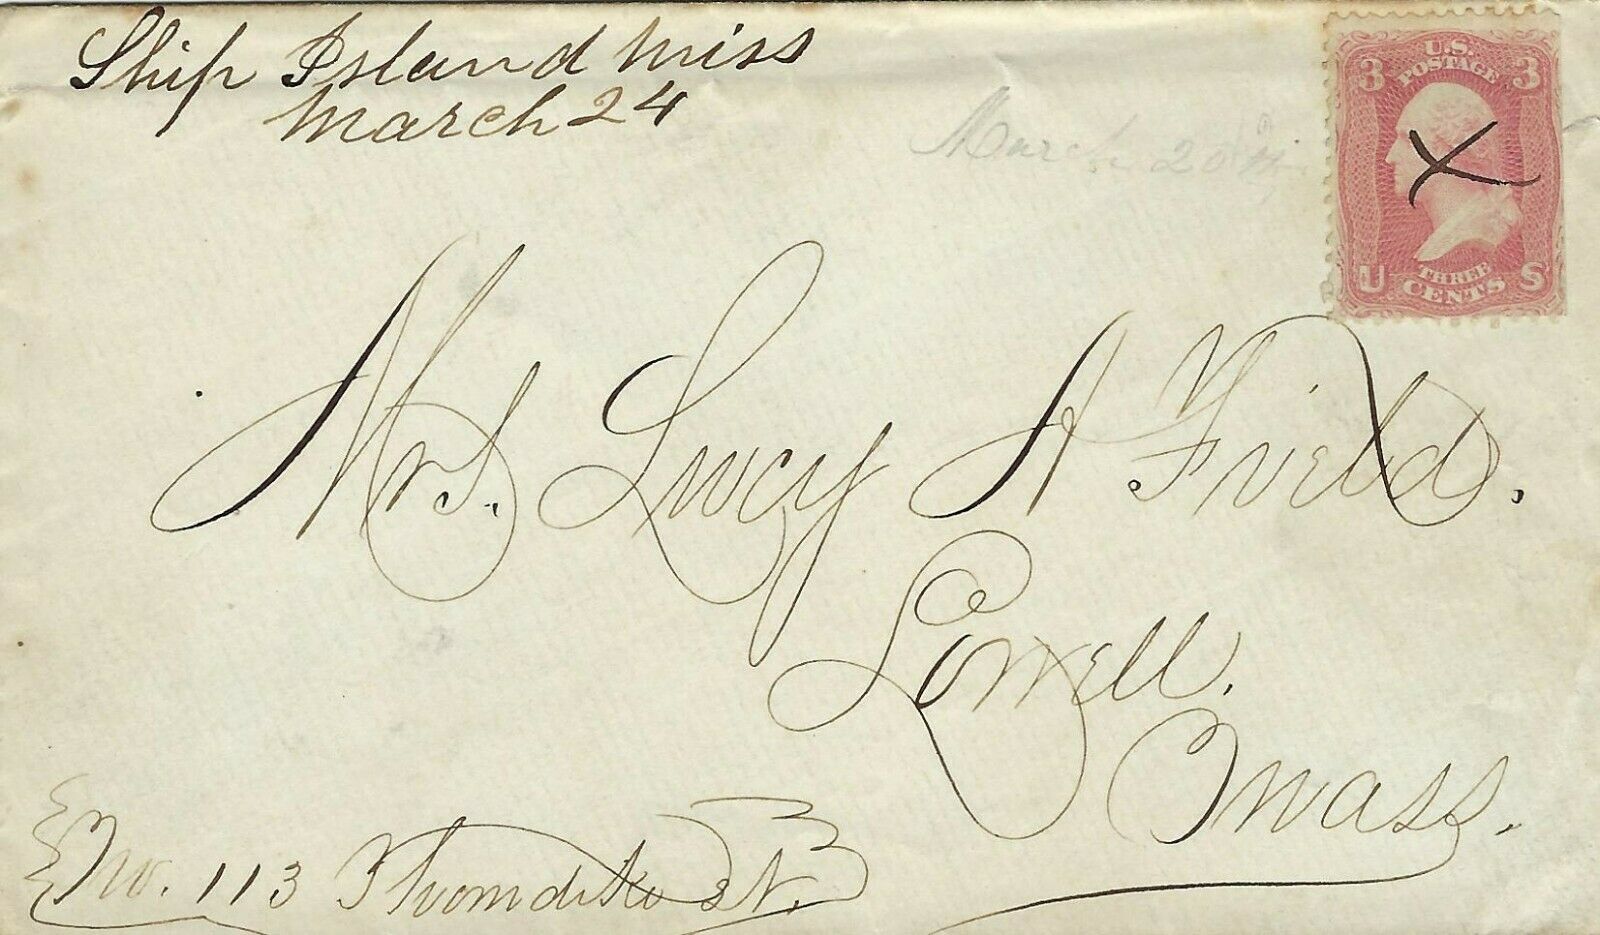 Ship Island Miss
March 24
March 20
3 U.S. POSTAGE 3
U THREE CENTS S
Mrs. Lucy A Field.
Lowell.
Mass.
No. 113 Thorndike St.